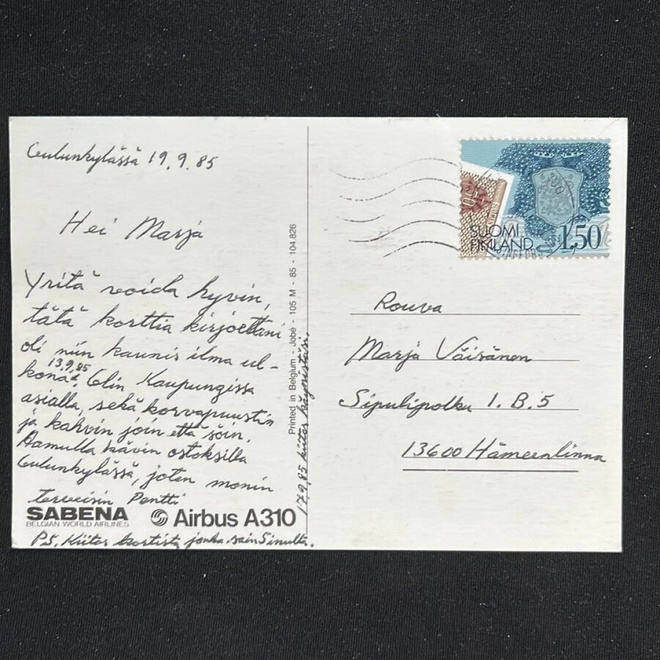 Oulunkylässä 19.9.85
Hei Marja
Yritä voida hyvin,
tätä korttia kirjoettani
oli niin kaunis ilma ul-
kona. Olin Kaupungissa
13.9.85
asialla, sekä korvapuustin
ja kahvin join että söin.
Aamulla kävin ostoksilla
Oulunkylässä, joten monin
terveisin Pentti
SABENA
BELGIAN WORLD AIRLINES
Airbus A310
P.S. Kiitos kortista jonka sain Sinulta.
17.9.85 kiitos käynistäsi.
Printed in Belgium - Jobé - 105 M - 85 - 104.826
SUOMI
FINLAND
1,50
Rouva
Marja Väisänen
Sipulipolku 1.B.5
13600 Hämeenlinna